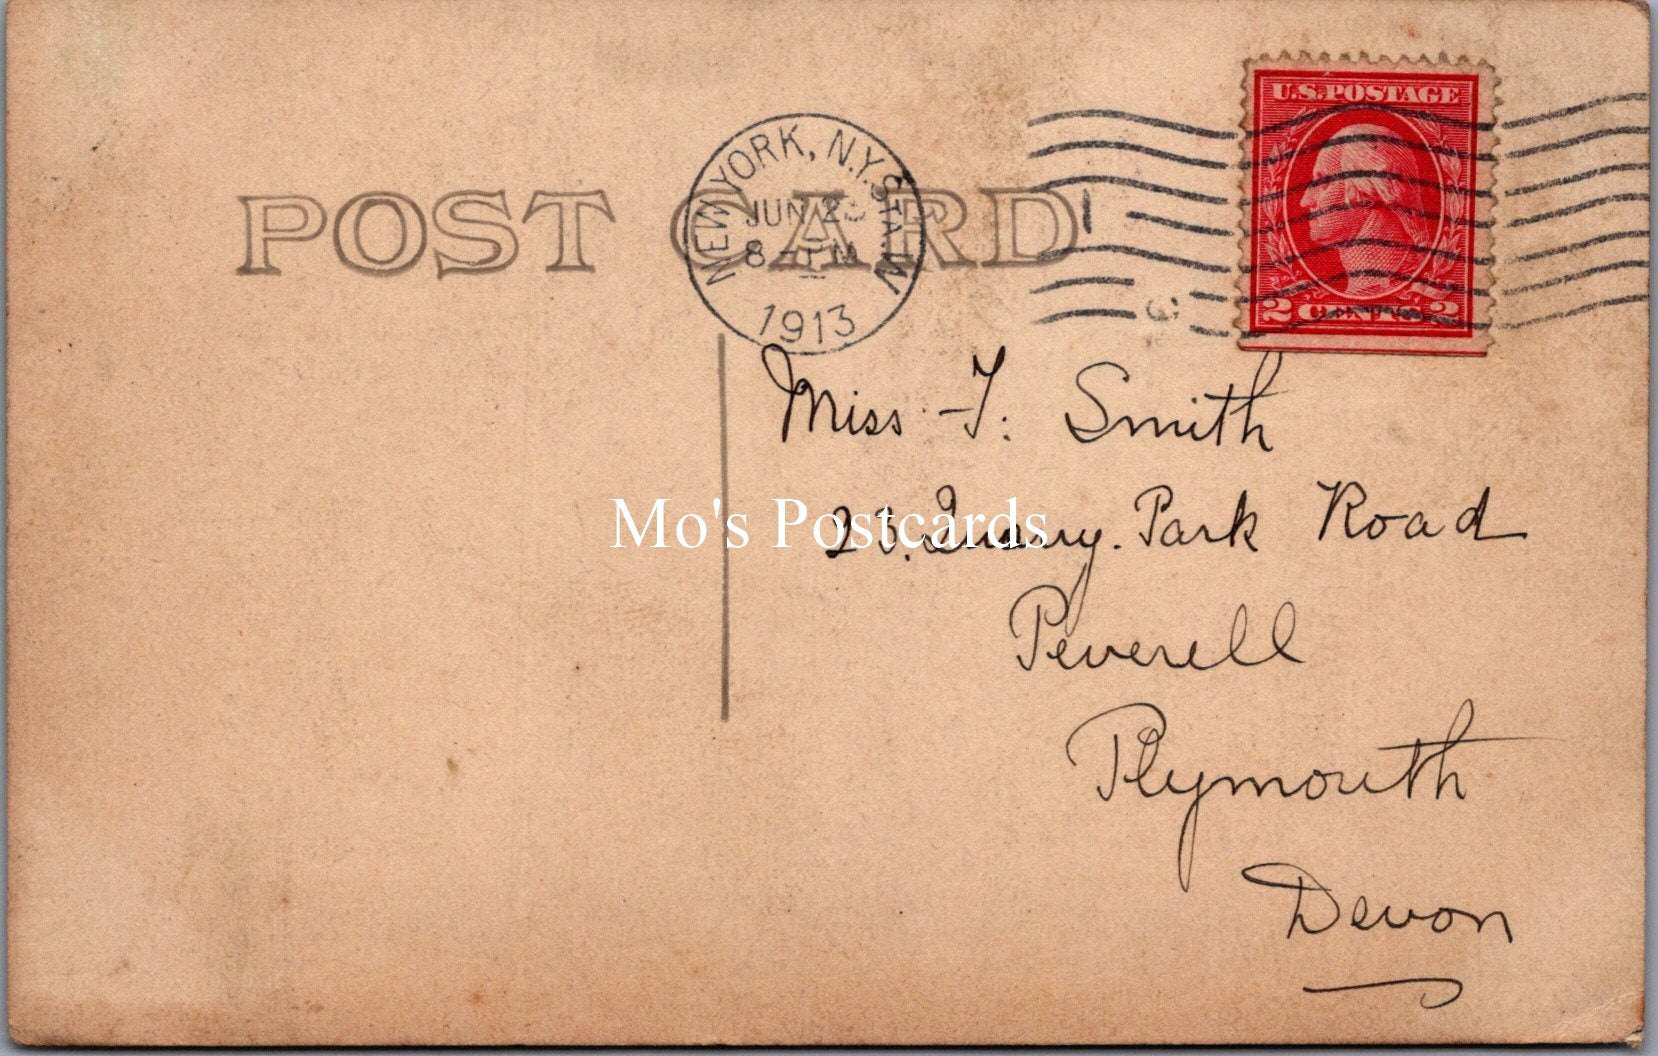 U.S. POSTAGE
POST CARD
NEW YORK, N.Y. STA. W
JUN 23
8 - PM
1913
2 CENTS 2
Miss T. Smith
Mo's Postcards
23. Quarry. Park Road
Peverell
Plymouth
Devon